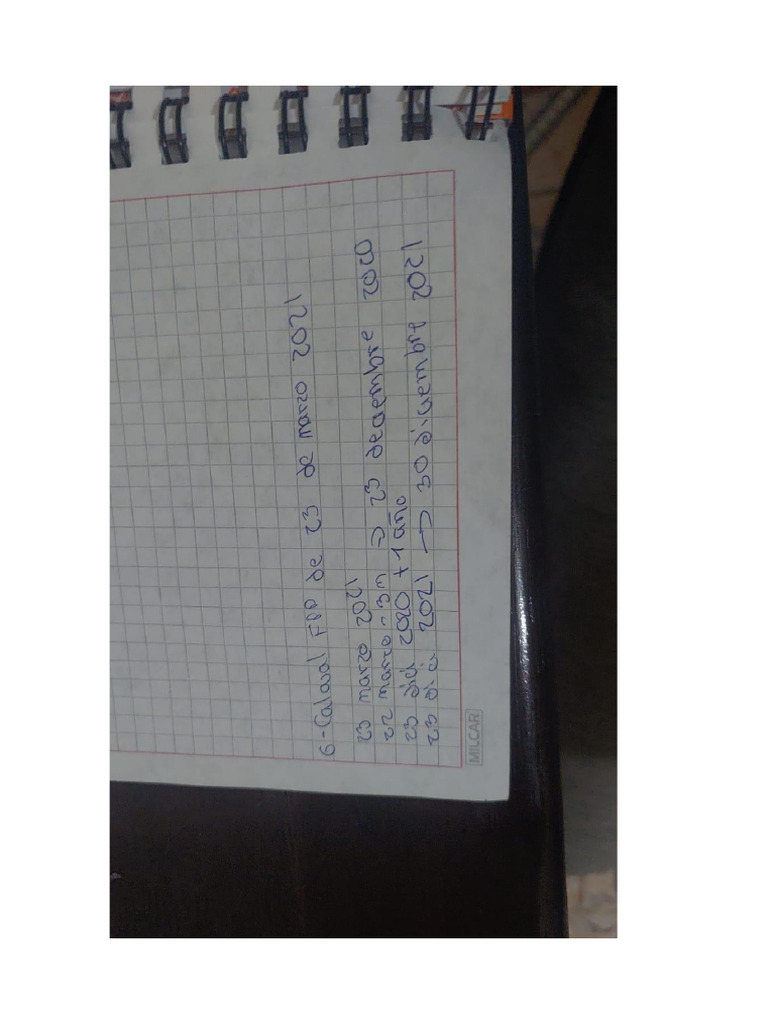 6-Calcual FPP de 23 de marzo 2021
23 marzo 2021
22 marzo - 3m => 23 deciembre 2020
23 dici 2020 + 1 año
23 dici 2021 → 30 diciembre 2021
MILCAR